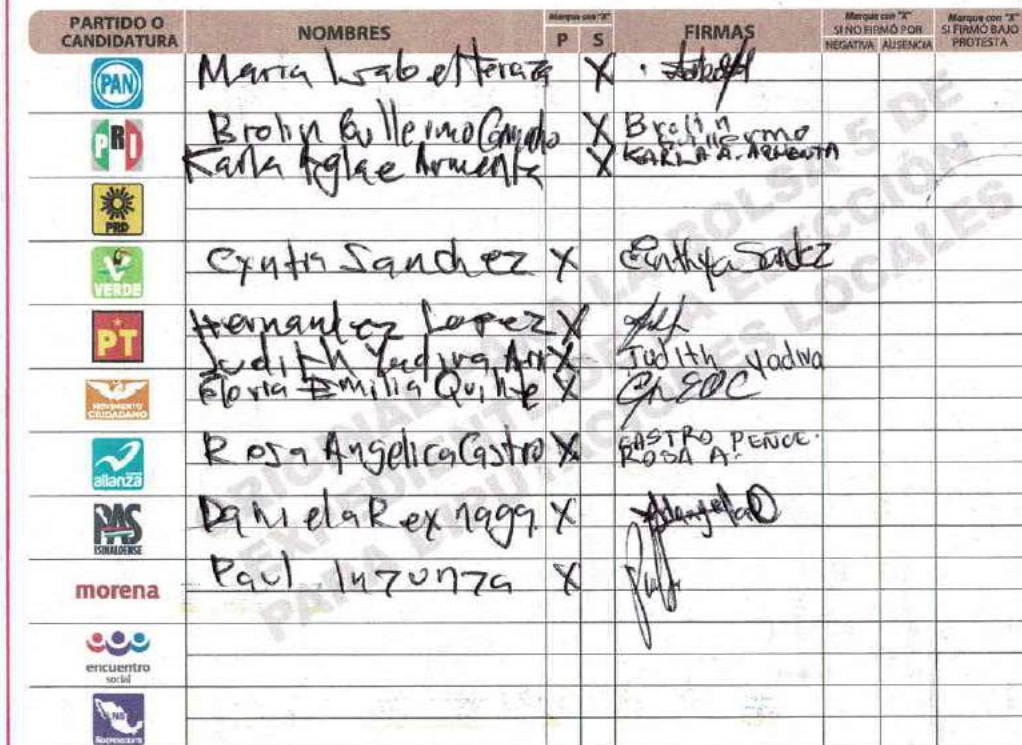 PARTIDO O CANDIDATURA
NOMBRES
Marque con "X"
P S
FIRMAS
Marque con "X" SI NO FIRMÓ POR
NEGATIVA AUSENCIA
Marque con "X" SI FIRMÓ BAJO PROTESTA
PAN Maria Isabel X
PRI Brolin Guillermo X Brolin Guillermo
Karla Aglae Armenta X KARLA A. ARMENTA
PRD
VERDE Cyntia Sanchez X
PT Hernandez Lopez X
Judith Yadira X Judith Yadira
MOVIMIENTO CIUDADANO Gloria Emilia X
alianza Rosa Angelica Castro X CASTRO
ROSA A.
PAS SINALOENSE Daniela Reynaga X
morena Paul Inzunza X
encuentro social
INDEPENDIENTE
ORIGINAL PARA LA BOLSA 5 DE
EXPEDIENTE DE LA ELECCIÓN
PARA DIPUTACIONES LOCALES